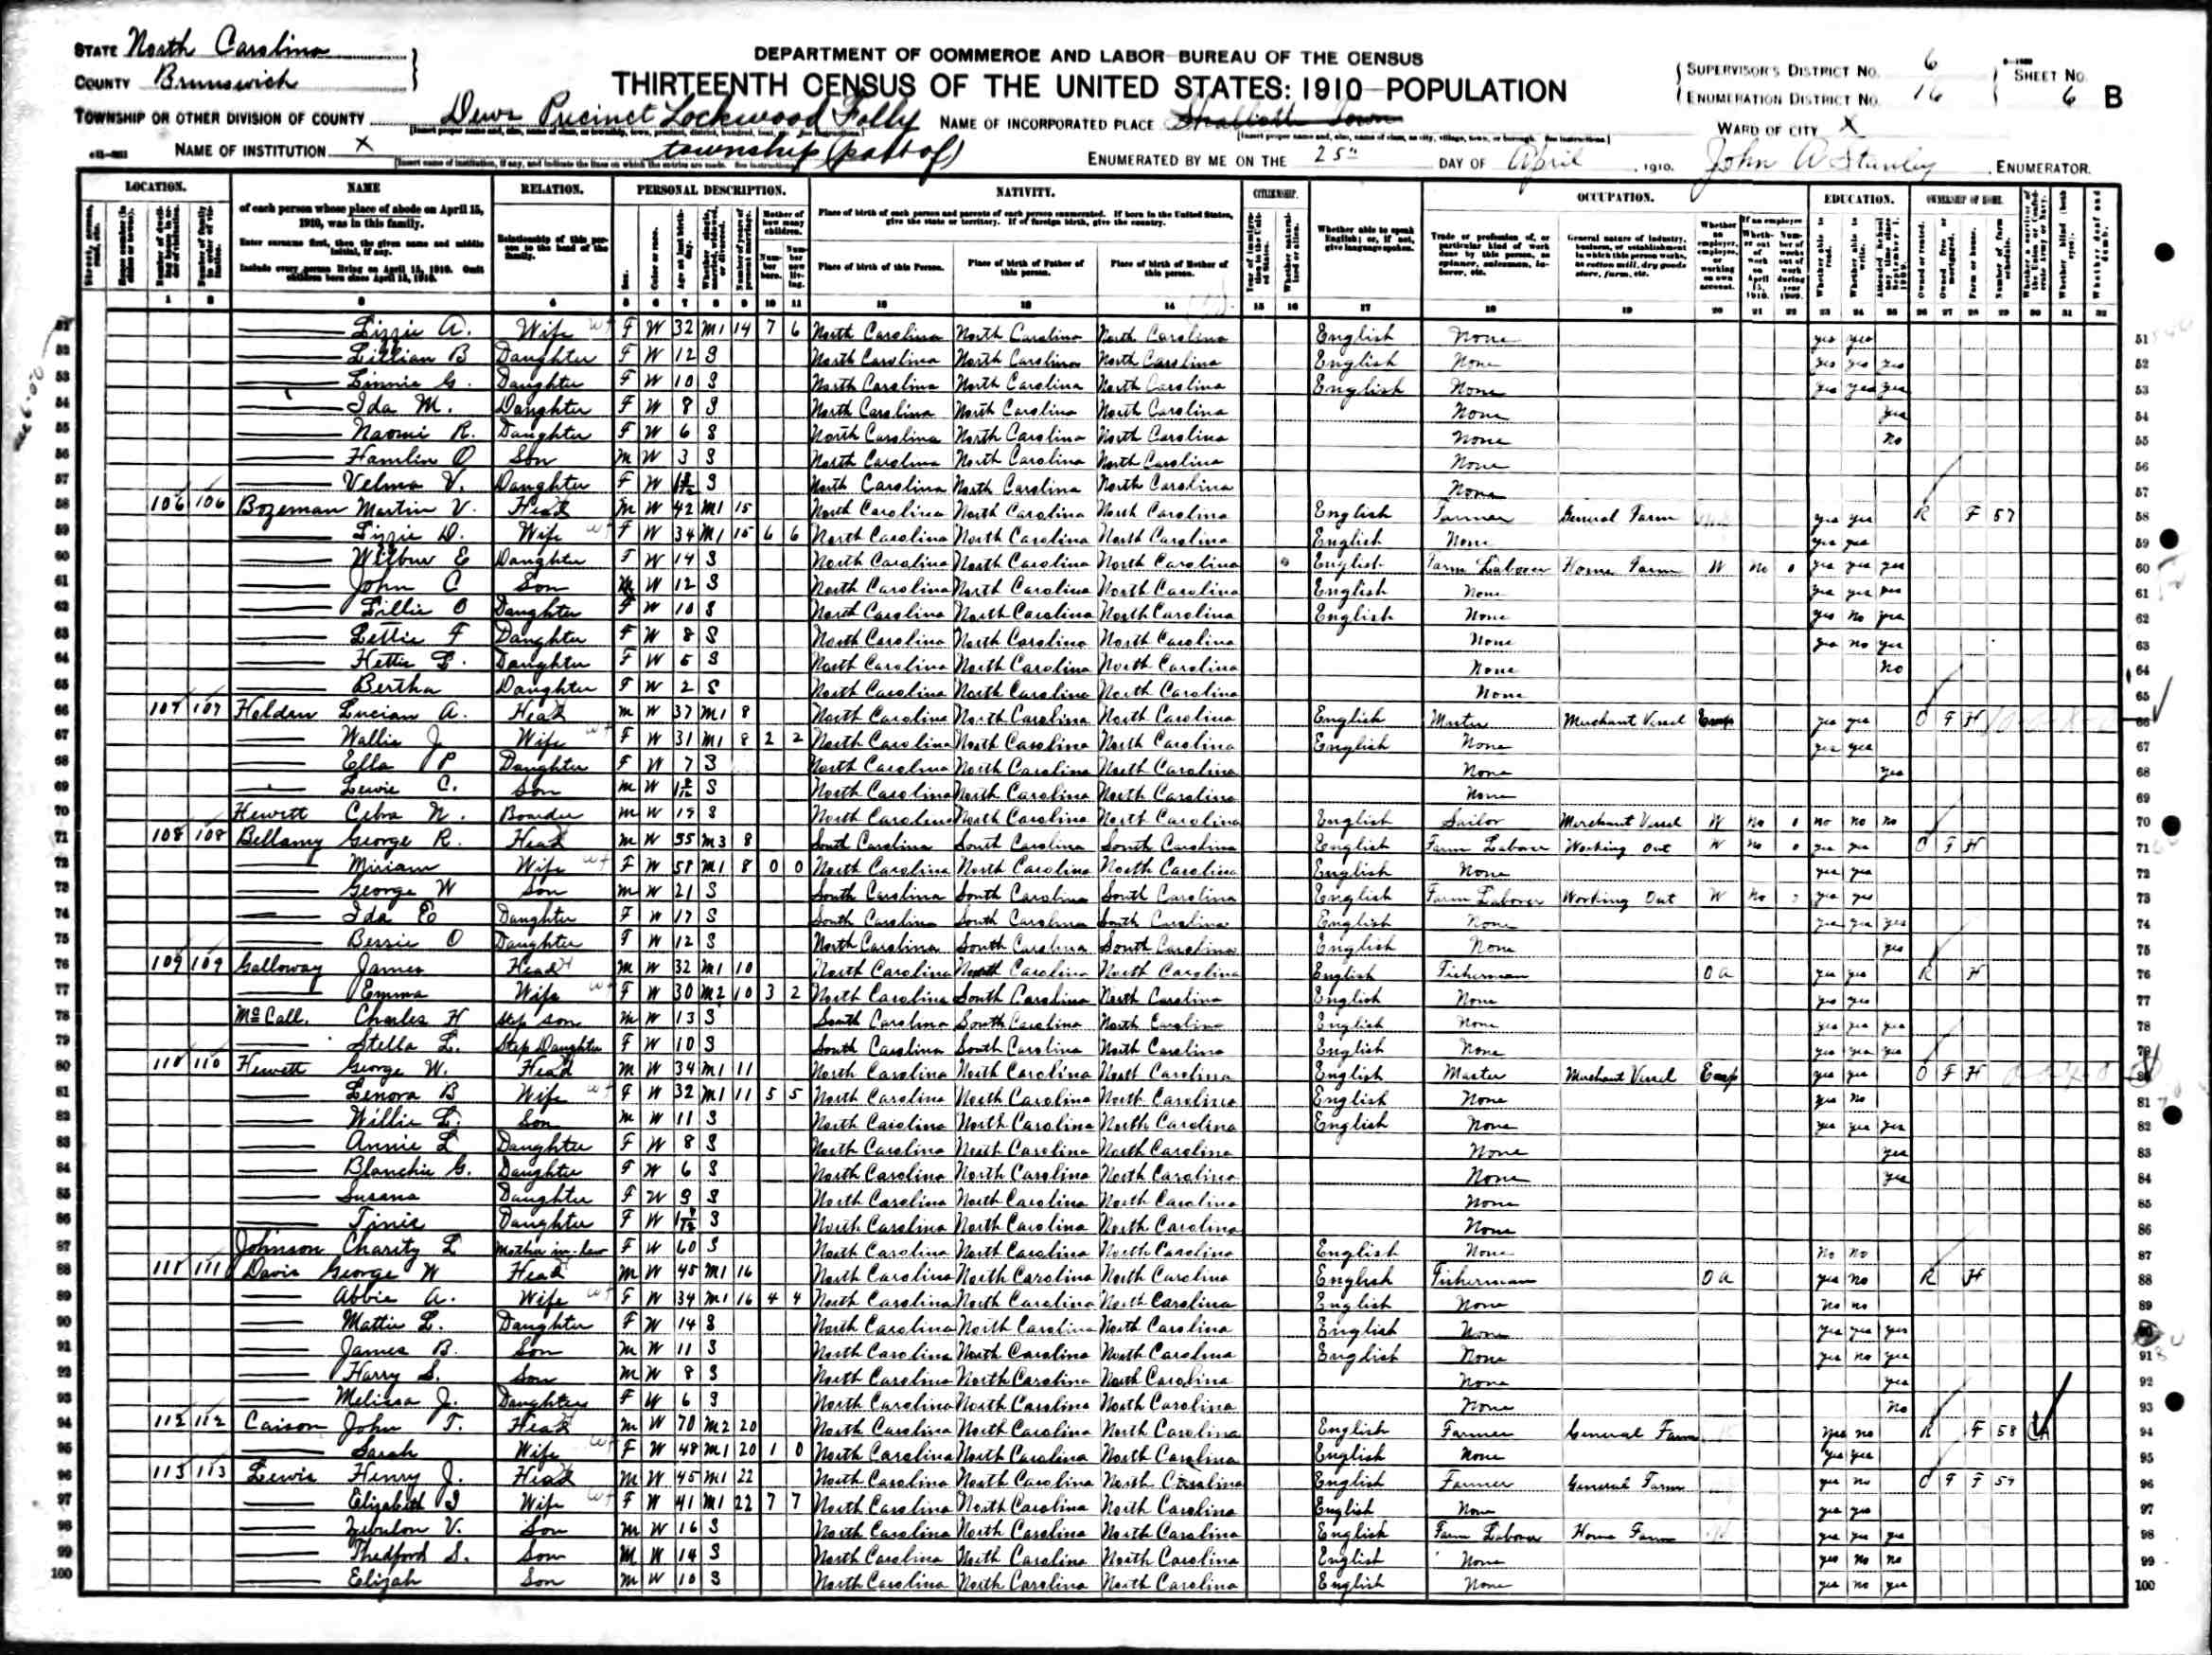 STATE North Carolina
COUNTY Brunswick
DEPARTMENT OF COMMERCE AND LABOR-BUREAU OF THE CENSUS
THIRTEENTH CENSUS OF THE UNITED STATES: 1910-POPULATION
SUPERVISOR'S DISTRICT NO. 6
ENUMERATION DISTRICT NO. 16
SHEET NO. 6 B
TOWNSHIP OR OTHER DIVISION OF COUNTY Dews Precinct Lockwood Folly township (part of)
NAME OF INCORPORATED PLACE
WARD OF CITY X
NAME OF INSTITUTION X
ENUMERATED BY ME ON THE 25th DAY OF April, 1910. John A Stanley, ENUMERATOR.
LOCATION. NAME RELATION. PERSONAL DESCRIPTION. NATIVITY. CITIZENSHIP. OCCUPATION. EDUCATION. OWNERSHIP OF HOME.
of each person whose place of abode on April 15, 1910, was in this family.
Enter surname first, then the given name and middle initial, if any.
Include every person living on April 15, 1910. Omit children born since April 15, 1910.
Relationship of this person to the head of the family.
Place of birth of each person and parents of each person enumerated. If born in the United States, give the state or territory. If of foreign birth, give the country.
Place of birth of this Person. Place of birth of Father of this person. Place of birth of Mother of this person.
Whether able to speak English; or, if not, give language spoken.
51 Lizzie A. Wife F W 32 M1 14 7 6 North Carolina North Carolina North Carolina English None yes yes 51
52 Lillian B Daughter F W 12 S North Carolina North Carolina North Carolina English None yes yes yes 52
53 Linnie G. Daughter F W 10 S North Carolina North Carolina North Carolina English None yes yes yes 53
54 Ida M. Daughter F W 8 S North Carolina North Carolina North Carolina None yes 54
55 Naomi R. Daughter F W 6 S North Carolina North Carolina North Carolina None no 55
56 Hamlin O Son M W 3 S North Carolina North Carolina North Carolina None 56
57 Velma V. Daughter F W S North Carolina North Carolina North Carolina None 57
58 106 106 Bozeman Martin V. Head M W 42 M1 15 North Carolina North Carolina North Carolina English Farmer General Farm yes yes R F 57 58
59 Lizzie D. Wife F W 34 M1 15 6 6 North Carolina North Carolina North Carolina English None yes yes 59
60 Wilbur E Daughter F W 14 S North Carolina North Carolina North Carolina English Farm Laborer Home Farm W no 0 yes yes yes 60
61 John C Son M W 12 S North Carolina North Carolina North Carolina English None yes yes yes 61
62 Lillie O Daughter F W 10 S North Carolina North Carolina North Carolina English None yes no yes 62
63 Lettie F Daughter F W 8 S North Carolina North Carolina North Carolina None yes no yes 63
64 Hettie L. Daughter F W 5 S North Carolina North Carolina North Carolina None no 64
65 Bertha Daughter F W 2 S North Carolina North Carolina North Carolina None 65
66 107 107 Holden Lucian A. Head M W 37 M1 8 North Carolina North Carolina North Carolina English Master Merchant Vessel Emp yes yes O F H 66
67 Wallie J Wife F W 31 M1 8 2 2 North Carolina North Carolina North Carolina English None yes yes 67
68 Ella P Daughter F W 7 S North Carolina North Carolina North Carolina None yes 68
69 Lewie C. Son M W S North Carolina North Carolina North Carolina None 69
70 Hewett Ceba N. Boarder M W 19 S North Carolina North Carolina North Carolina English Sailor Merchant Vessel W no 0 no no no 70
71 108 108 Bellamy George R. Head M W 55 M3 8 South Carolina South Carolina South Carolina English Farm Laborer Working Out W no 0 yes yes O F H 71
72 Miriam Wife F W 58 M1 8 0 0 North Carolina North Carolina North Carolina English None yes yes 72
73 George W Son M W 21 S South Carolina South Carolina South Carolina English Farm Laborer Working Out W no 0 yes yes 73
74 Ida E Daughter F W 17 S South Carolina South Carolina South Carolina English None yes yes yes 74
75 Bessie O Daughter F W 12 S North Carolina South Carolina South Carolina English None yes 75
76 109 109 Galloway James Head M W 32 M1 10 North Carolina North Carolina North Carolina English Fisherman OA yes yes R H 76
77 Emma Wife F W 30 M2 10 3 2 North Carolina South Carolina North Carolina English None yes yes 77
78 McCall. Charles H Step son M W 13 S South Carolina South Carolina North Carolina English None yes yes yes 78
79 Stella L. Step Daughter F W 10 S South Carolina South Carolina North Carolina English None yes yes yes 79
80 110 110 Hewett George W. Head M W 34 M1 11 North Carolina North Carolina North Carolina English Master Merchant Vessel Emp yes yes O F H
81 Lenora B Wife F W 32 M1 11 5 5 North Carolina North Carolina North Carolina English None yes no 81
82 Willie L. Son M W 11 S North Carolina North Carolina North Carolina English None yes yes yes 82
83 Annie L Daughter F W 8 S North Carolina North Carolina North Carolina None yes 83
84 Blanchie G. Daughter F W 6 S North Carolina North Carolina North Carolina None yes 84
85 Susana Daughter F W 3 S North Carolina North Carolina North Carolina None 85
86 Tinie Daughter F W S North Carolina North Carolina North Carolina None 86
87 Johnson Charity L Mother in-law F W 60 S North Carolina North Carolina North Carolina English None no no 87
88 111 111 Davis George W Head M W 45 M1 16 North Carolina North Carolina North Carolina English Fisherman OA yes no R H 88
89 Abbie A. Wife F W 34 M1 16 4 4 North Carolina North Carolina North Carolina English None no no 89
90 Mattie L. Daughter F W 14 S North Carolina North Carolina North Carolina English None yes yes yes
91 James B. Son M W 11 S North Carolina North Carolina North Carolina English None yes no yes 91
92 Harry S. Son M W 8 S North Carolina North Carolina North Carolina None yes 92
93 Melissa J. Daughter F W 6 S North Carolina North Carolina North Carolina None no 93
94 112 112 Caison John T. Head M W 70 M2 20 North Carolina North Carolina North Carolina English Farmer General Farm yes no R F 58 94
95 Sarah Wife F W 48 M1 20 1 0 North Carolina North Carolina North Carolina English None yes yes 95
96 113 113 Lewis Henry J. Head M W 45 M1 22 North Carolina North Carolina North Carolina English Farmer General Farm yes no O F F 59 96
97 Elizabeth I Wife F W 41 M1 22 7 7 North Carolina North Carolina North Carolina English None yes yes 97
98 Zebulon V. Son M W 16 S North Carolina North Carolina North Carolina English Farm Laborer Home Farm yes yes yes 98
99 Thedford S. Son M W 14 S North Carolina North Carolina North Carolina English None yes no no 99
100 Elijah Son M W 10 S North Carolina North Carolina North Carolina English None yes no yes 100